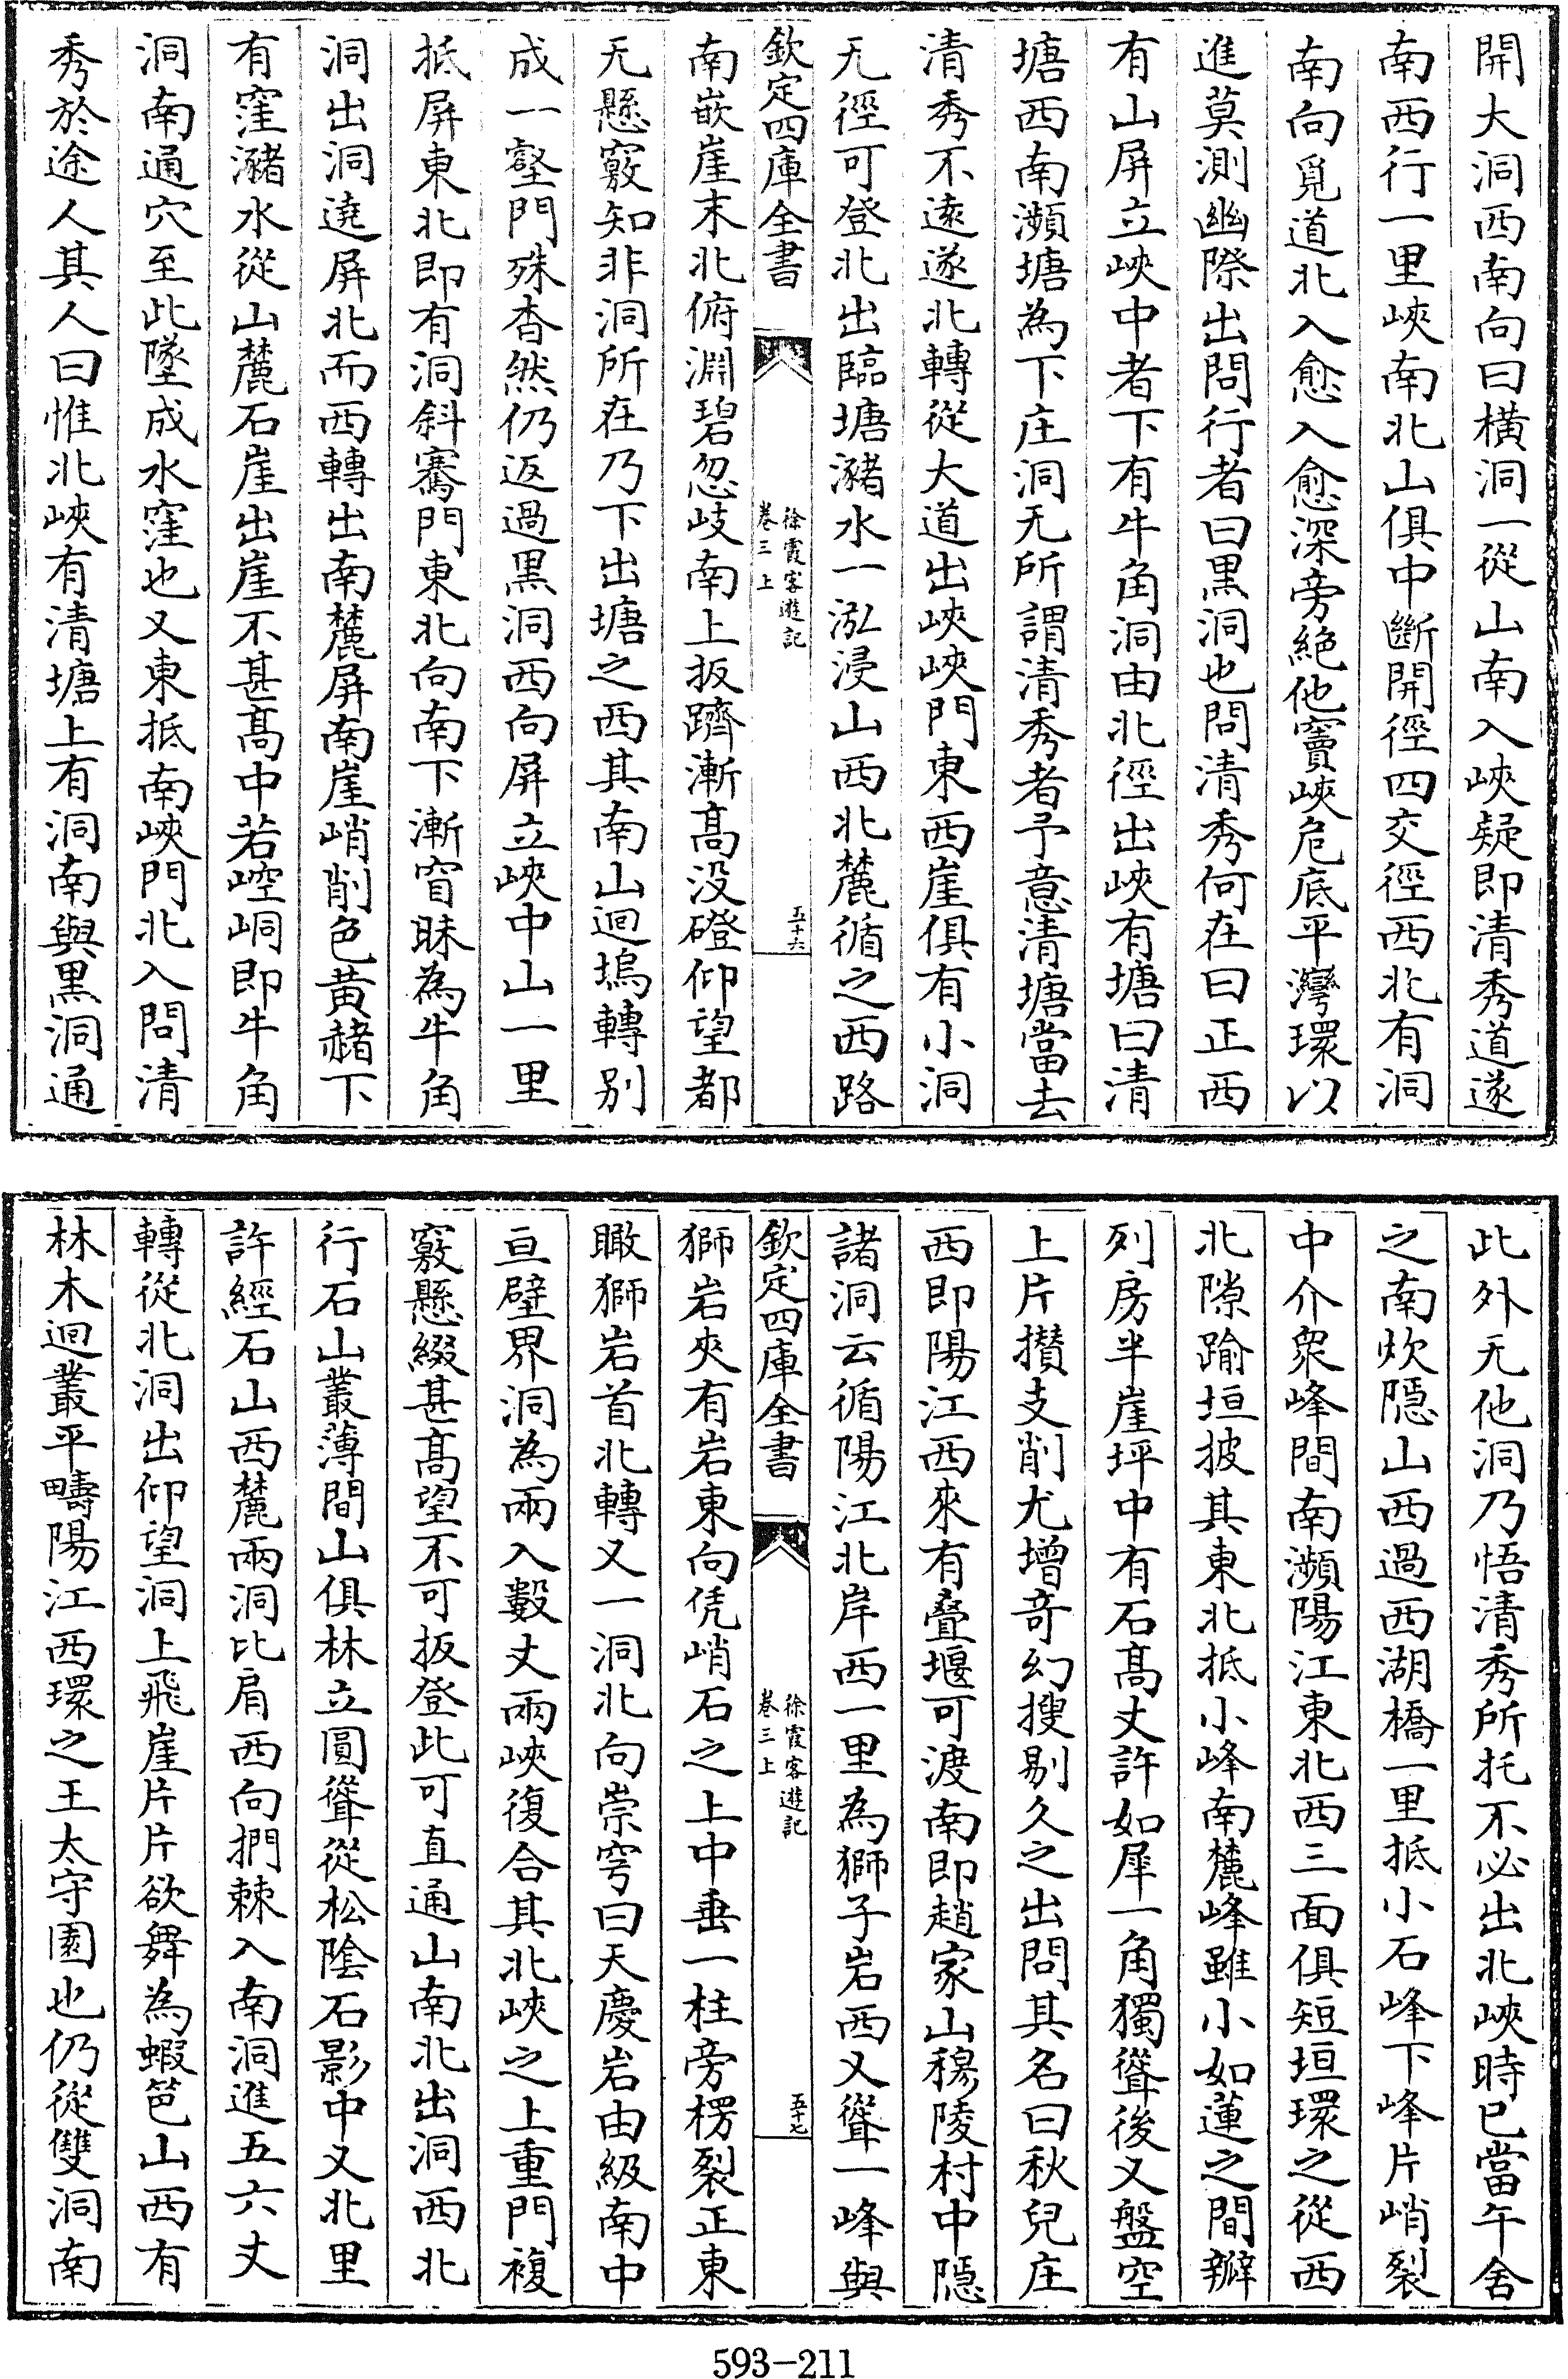 開大洞西南向曰橫洞一從山南入峽疑即清秀道遂
南西行一里峽南北山俱中斷開徑四交徑西北有洞
南向覓道北入愈入愈深旁絶他竇峽危底平灣環以
進莫測幽際出問行者曰黒洞也問清秀何在曰正西
有山屏立峽中者下有牛角洞由北徑出峽有塘曰清
塘西南瀕塘為下庄洞无所謂清秀者予意清塘當去
清秀不逺遂北轉從大道出峽峽門東西崖俱有小洞
无徑可登北出臨塘瀦水一泓浸山西北麓循之西路
欽定四庫全書
徐霞客遊記
卷三上
五十六
南嵌崖末北俯淵碧忽歧南上扳躋漸髙没磴仰望都
无懸竅知非洞所在乃下出塘之西其南山迴塢轉别
成一壑門殊杳然仍返過黒洞西向屏立峽中山一里
抵屏東北即有洞斜騫門東北向南下漸窅昧為牛角
洞出洞遶屏北而西轉出南麓屏南崖峭削色黄赭下
有窪瀦水從山麓石崖出崖不甚髙中若崆峒即牛角
洞南通穴至此墜成水窪也又東抵南峽門北入問清
秀於途人其人曰惟北峽有清塘上有洞南與黒洞通
此外无他洞乃悟清秀所托不必出北峽時已當午舍
之南炊隱山西過西湖橋一里抵小石峰下峰片峭裂
中介衆峰間南瀕陽江東北西三面俱短垣環之從西
北隙踰垣披其東北抵小峰南麓峰雖小如蓮之間瓣
列房半崖坪中有石髙丈許如犀一角獨聳後又盤空
上片攅支削尤增奇幻搜剔久之出問其名曰秋兒庄
西即陽江西來有疊堰可渡南即趙家山穆陵村中隱
諸洞云循陽江北岸西一里為獅子岩西又聳一峰與
欽定四庫全書
徐霞客遊記
卷三上
五十七
獅岩夾有岩東向凭峭石之上中垂一柱旁楞裂正東
瞰獅岩首北轉又一洞北向崇穹曰天慶岩由級南中
亘壁界洞為兩入數丈兩峽復合其北峽之上重門複
竅懸綴甚髙望不可扳登此可直通山南北出洞西北
行石山叢薄間山俱林立圓聳從松隂石影中又北里
許經石山西麓兩洞比肩西向捫棘入南洞進五六丈
轉從北洞出仰望洞上飛崖片片欲舞為蝦笆山西有
林木迴叢平疇陽江西環之王太守園也仍從雙洞南
593-211